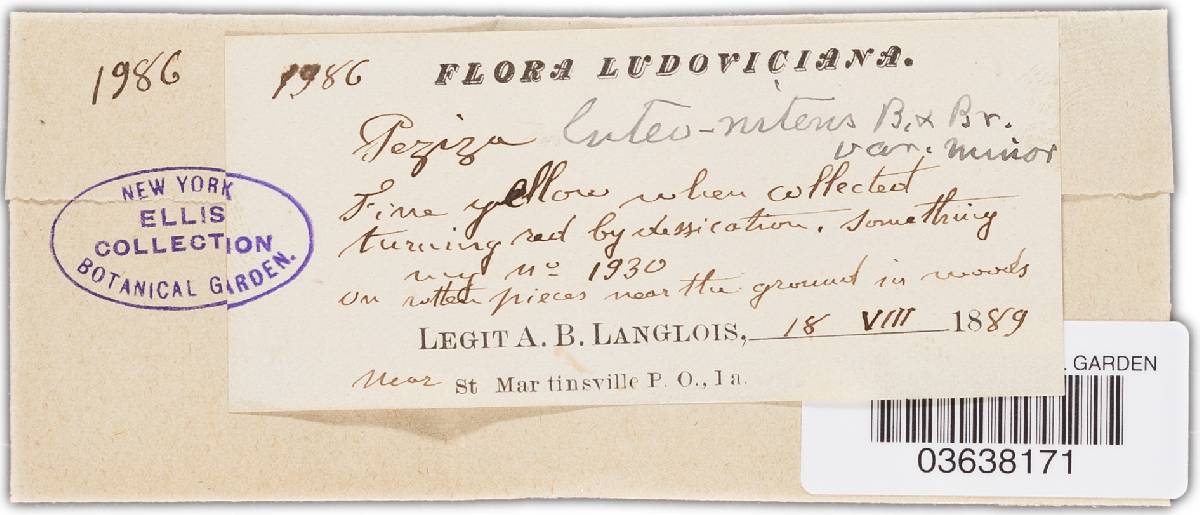 1986
1986 FLORA LUDOVICIANA.
Peziza luteo-nitens B. & Br.
var. minor
Fine yellow when collected
turning red by dessication. something
my no 1930
on rotten pieces near the ground in woods
LEGIT A. B. LANGLOIS, 18 VIII 1889
near St Martinsville P. O., La.
NEW YORK
ELLIS
COLLECTION
BOTANICAL GARDEN.
GARDEN
03638171